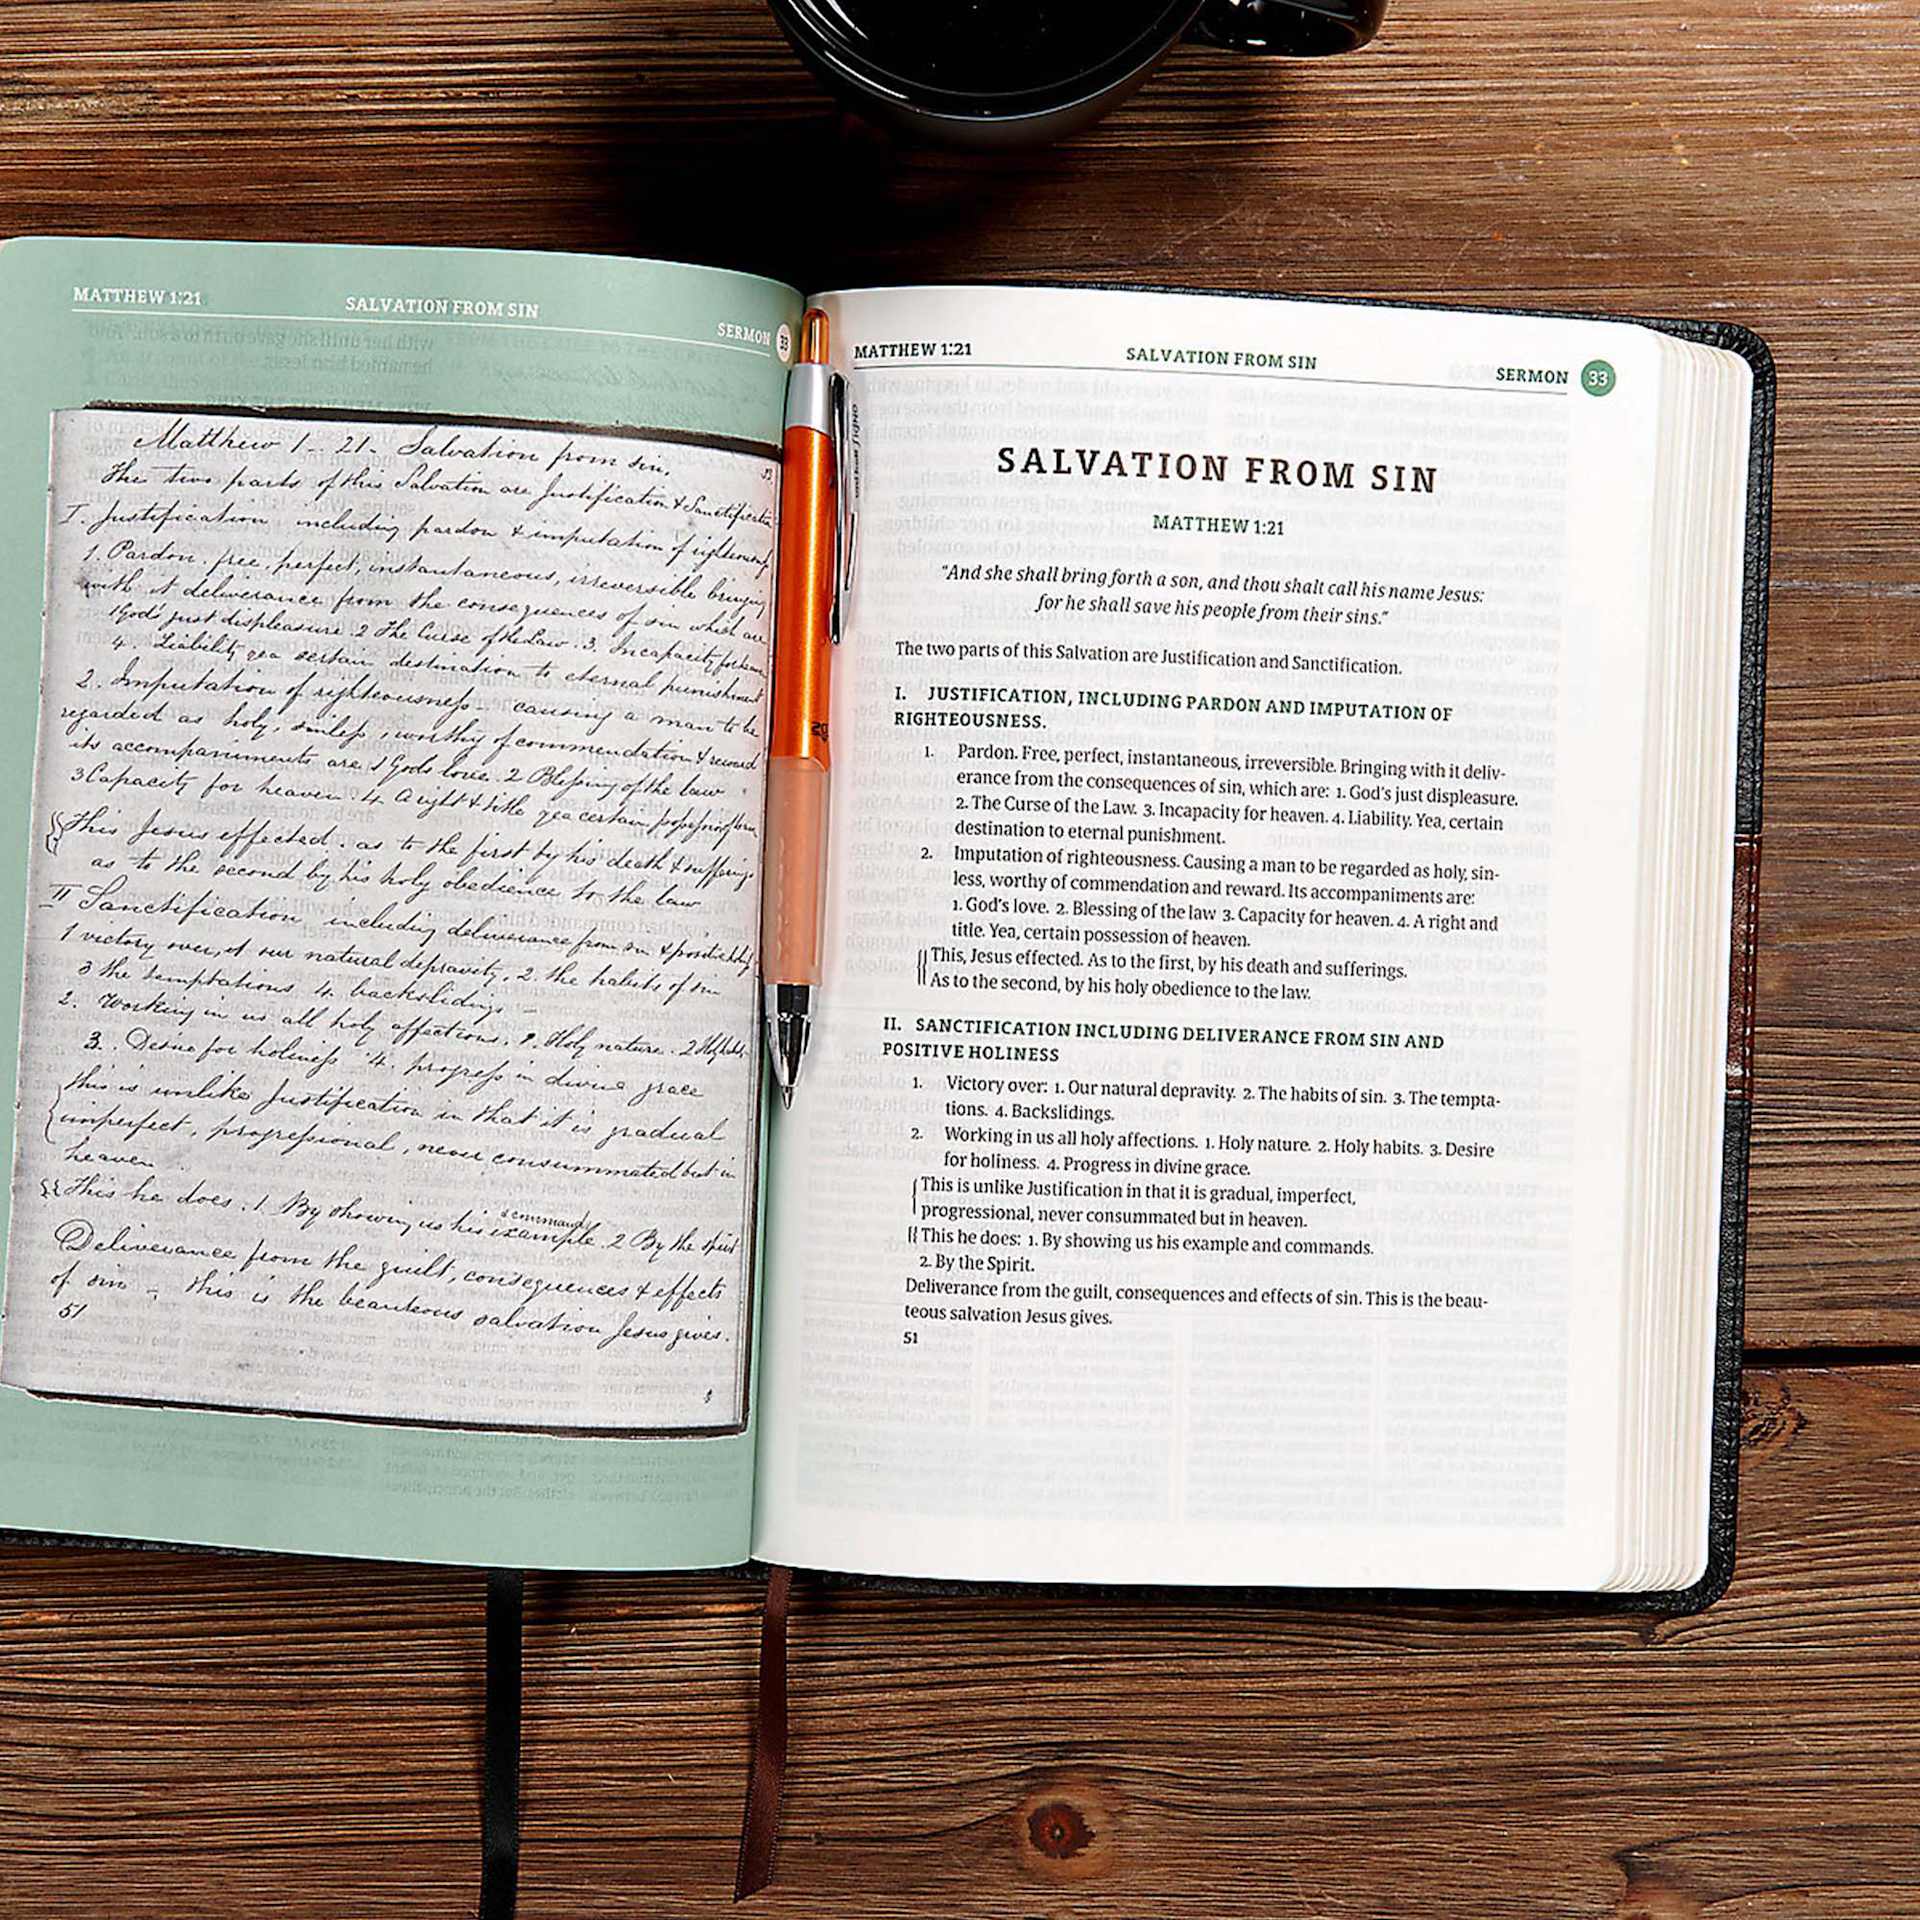 MATTHEW 1:21 SALVATION FROM SIN SERMON 33
Matthew 1. 21. Salvation from sin.
The two parts of this Salvation are Justification & Sanctification
I. Justification, including pardon & imputation of righteousness
1. Pardon. free, perfect, instantaneous, irreversible bringing
with it deliverance from the consequences of sin which are
1 God's just displeasure. 2 The Curse of the Law. 3. Incapacity for heaven
4. Liability yea certain destination to eternal punishment
2. Imputation of righteousness. causing a man to be
regarded as holy, sinless, worthy of commendation & reward
its accompaniments are 1 Gods love. 2 Blessing of the law
3 Capacity for heaven. 4 A right & title yea certain possession of heaven
This Jesus effected. as to the first by his death & sufferings
as to the second by his holy obedience to the law
II Sanctification including deliverance from sin & positive holiness
1 victory over, 1 our natural depravity. 2 the habits of sin
3 the temptations 4. backslidings
2. Working in us all holy affections. 1. Holy nature. 2 Holy habits
3. Desire for holiness 4. progress in divine grace
this is unlike Justification in that it is gradual
imperfect, progressional, never consummated but in
heaven
& commands
This he does. 1 By showing us his example. 2 By the spirit
Deliverance from the guilt, consequences & effects
of sin - this is the beauteous salvation Jesus gives.
51
MATTHEW 1:21 SALVATION FROM SIN SERMON 33
SALVATION FROM SIN
MATTHEW 1:21
“And she shall bring forth a son, and thou shalt call his name Jesus:
for he shall save his people from their sins.”
The two parts of this Salvation are Justification and Sanctification.
I. JUSTIFICATION, INCLUDING PARDON AND IMPUTATION OF
RIGHTEOUSNESS.
1. Pardon. Free, perfect, instantaneous, irreversible. Bringing with it deliv-
erance from the consequences of sin, which are: 1. God’s just displeasure.
2. The Curse of the Law. 3. Incapacity for heaven. 4. Liability. Yea, certain
destination to eternal punishment.
2. Imputation of righteousness. Causing a man to be regarded as holy, sin-
less, worthy of commendation and reward. Its accompaniments are:
1. God’s love. 2. Blessing of the law 3. Capacity for heaven. 4. A right and
title. Yea, certain possession of heaven.
This, Jesus effected. As to the first, by his death and sufferings.
As to the second, by his holy obedience to the law.
II. SANCTIFICATION INCLUDING DELIVERANCE FROM SIN AND
POSITIVE HOLINESS
1. Victory over: 1. Our natural depravity. 2. The habits of sin. 3. The tempta-
tions. 4. Backslidings.
2. Working in us all holy affections. 1. Holy nature. 2. Holy habits. 3. Desire
for holiness. 4. Progress in divine grace.
This is unlike Justification in that it is gradual, imperfect,
progressional, never consummated but in heaven.
This he does: 1. By showing us his example and commands.
2. By the Spirit.
Deliverance from the guilt, consequences and effects of sin. This is the beau-
teous salvation Jesus gives.
51